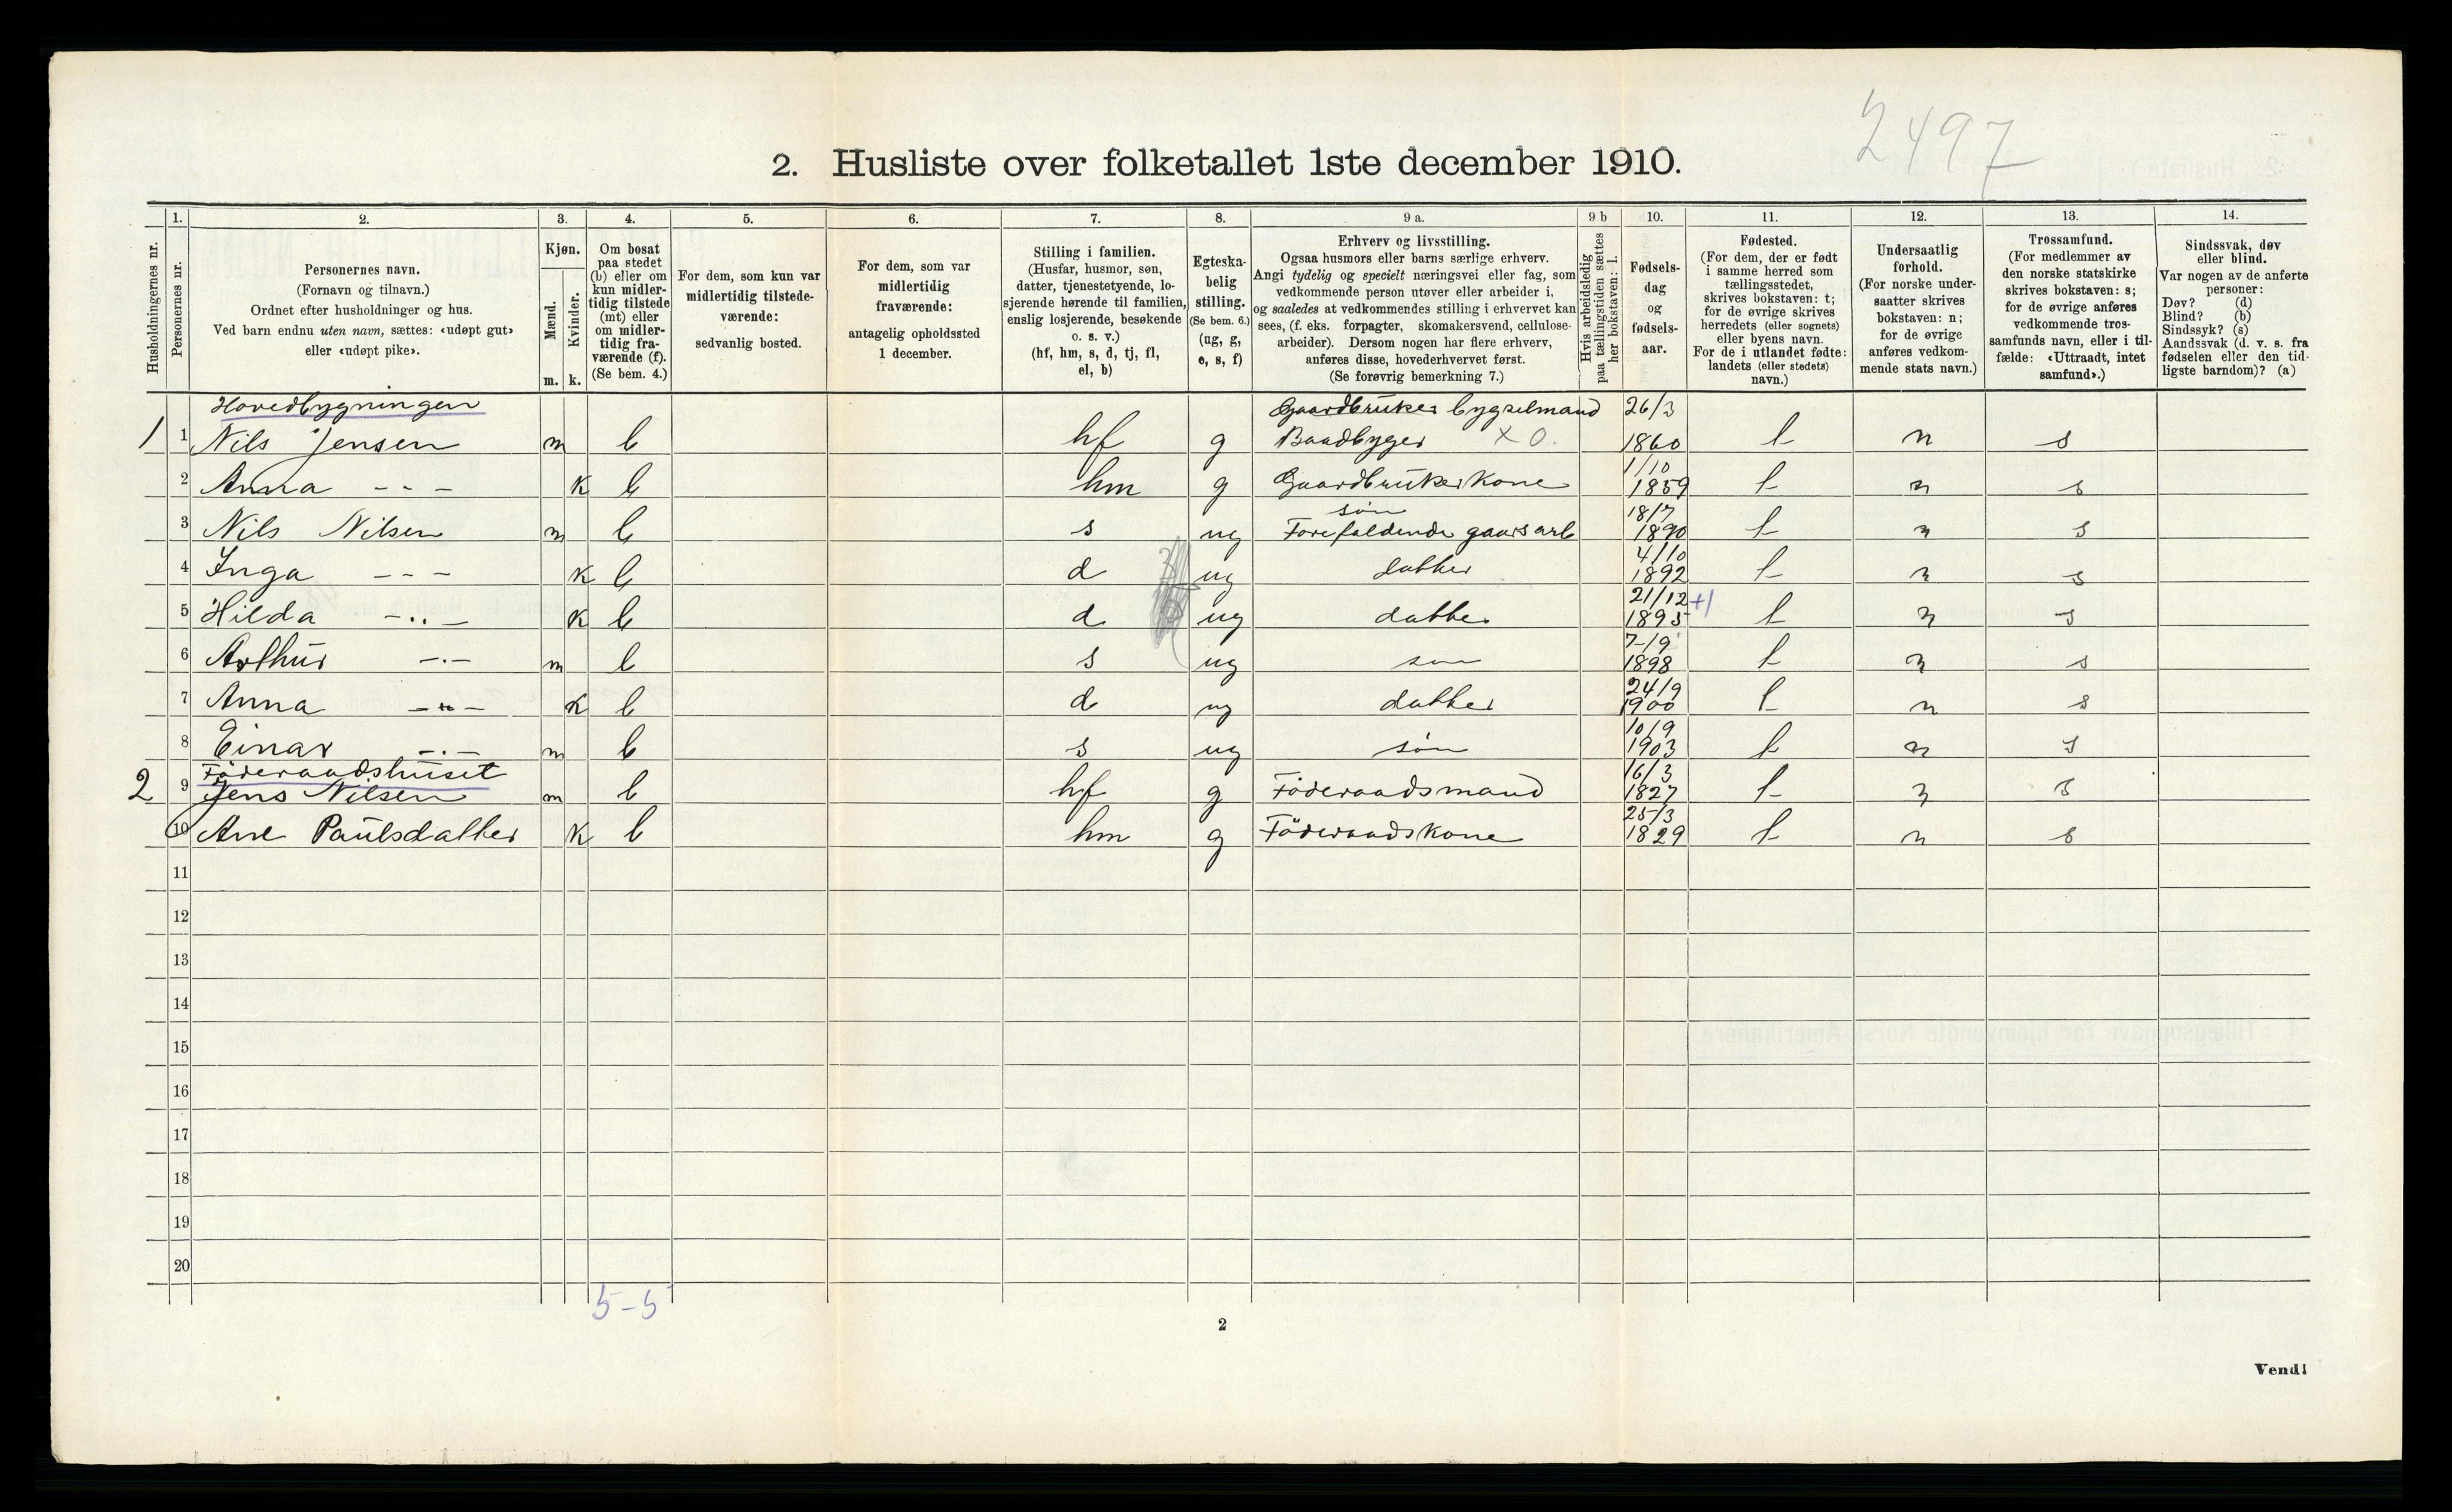 2497
2. Husliste over folketallet 1ste december 1910.
Husholdningernes nr.
1.
Personernes nr.
2.
Personernes navn.
(Fornavn og tilnavn.)
Ordnet efter husholdninger og hus.
Ved barn endnu uten navn, sættes: «udøpt gut»
eller «udøpt pike».
3.
Kjøn.
Mænd.
Kvinder.
m. k.
4.
Om bosat
paa stedet
(b) eller om
kun midler-
tidig tilstede
(mt) eller
om midler-
tidig fra-
værende (f).
(Se bem. 4.)
5.
For dem, som kun var
midlertidig tilstede-
værende:
sedvanlig bosted.
6.
For dem, som var
midlertidig
fraværende:
antagelig opholdssted
1 december.
7.
Stilling i familien.
(Husfar, husmor, søn,
datter, tjenestetyende, lo-
sjerende hørende til familien,
enslig losjerende, besøkende
o. s. v.)
(hf, hm, s, d, tj, fl,
el, b)
8.
Egteska-
belig
stilling.
(Se bem. 6.)
(ug, g,
e, s, f)
9 a.
Erhverv og livsstilling.
Ogsaa husmors eller barns særlige erhverv.
Angi tydelig og specielt næringsvei eller fag, som
vedkommende person utøver eller arbeider i,
og saaledes at vedkommendes stilling i erhvervet kan
sees, (f. eks. forpagter, skomakersvend, cellulose-
arbeider). Dersom nogen har flere erhverv,
anføres disse, hovederhvervet først.
(Se forøvrig bemerkning 7.)
9 b
Hvis arbeidsledig
paa tællingstiden sættes
her bokstaven: l.
10.
Fødsels-
dag
og
fødsels-
aar.
11.
Fødested.
(For dem, der er født
i samme herred som
tællingsstedet,
skrives bokstaven: t;
for de øvrige skrives
herredets (eller sognets)
eller byens navn.
For de i utlandet fødte:
landets (eller stedets)
navn.)
12.
Undersaatlig
forhold.
(For norske under-
saatter skrives
bokstaven: n;
for de øvrige
anføres vedkom-
mende stats navn.)
13.
Trossamfund.
(For medlemmer av
den norske statskirke
skrives bokstaven: s;
for de øvrige anføres
vedkommende tros-
samfunds navn, eller i til-
fælde: «Uttraadt, intet
samfund».)
14.
Sindssvak, døv
eller blind.
Var nogen av de anførte
personer:
Døv? (d)
Blind? (b)
Sindssyk? (s)
Aandssvak (d. v. s. fra
fødselen eller den tid-
ligste barndom)? (a)
Hovedbygningen Gaardbruker bygselmand 26/3
1 1 Nils Jensen m b hf g Baadbyger X 0. 1860 t n s
1/10
2 Anna - - - k b hm g Gaardbrukerkone 1859 t n s
søn 18/7
3 Nils Nilsen m b s ug Forefaldende gaards arb 1890 t n s
4/10
4 Inga - - - k b d ug datter 1892 t n s
21/12 +1
5 Hilda -..- k b d ug datter 1895 t n s
7/9
6 Arthur -.- m b s ug søn 1898 t n s
24/9
7 Anna -"- k b d ug datter 1900 t n s
10/9
8 Einar -.- m b s ug søn 1903 t n s
Föderaadshuset 16/3
2 9 Jens Nilsen m b hf g Föderaadsmand 1827 t n s
25/3
10 Ane Paulsdatter k b hm g Föderaadskone 1829 t n s
11
12
13
14
15
16
17
18
19
20
5-5
2
Vend!